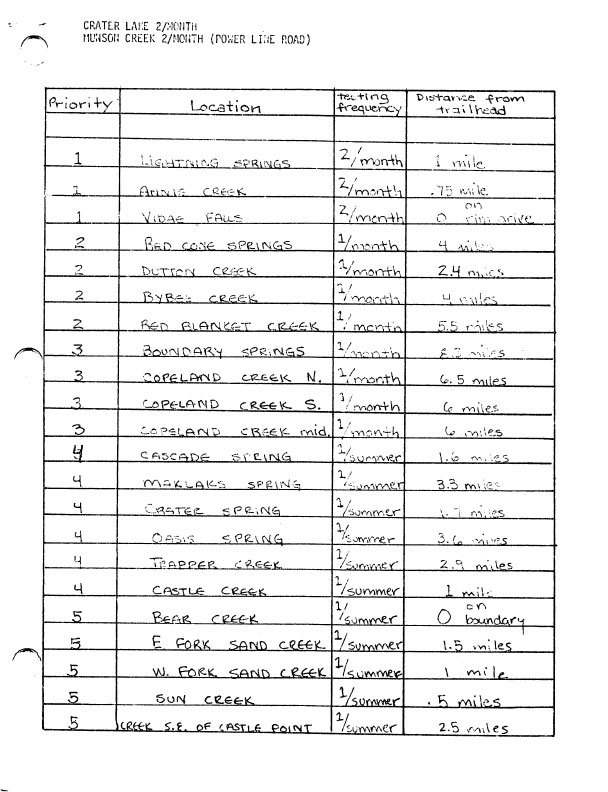 CRATER LAKE 2/MONTH
MUNSON CREEK 2/MONTH (POWER LINE ROAD)
Priority Location testing frequency Distance from trailhead
1 LIGHTNING SPRINGS 2/month 1 mile
1 ANNIE CREEK 2/month .75 mile
1 VIDAE FALLS 2/month 0 on rim drive
2 RED CONE SPRINGS 1/month 4 miles
2 DUTTON CREEK 1/month 2.4 miles
2 BYBEE CREEK 1/month 4 miles
2 RED BLANKET CREEK 1/month 5.5 miles
3 BOUNDARY SPRINGS 1/month miles
3 COPELAND CREEK N. 1/month 6.5 miles
3 COPELAND CREEK S. 1/month 6 miles
3 COPELAND CREEK mid. 1/month 6 miles
4 CASCADE SPRING 1/summer 1.6 miles
4 MAKLAKS SPRING 1/summer 3.3 miles
4 CRATER SPRING 1/summer 1.7 miles
4 OASIS SPRING 1/summer 3.6 miles
4 TRAPPER CREEK 1/summer 2.9 miles
4 CASTLE CREEK 1/summer 1 mile
5 BEAR CREEK 1/summer 0 on boundary
5 E FORK SAND CREEK 1/summer 1.5 miles
5 W. FORK SAND CREEK 1/summer 1 mile
5 SUN CREEK 1/summer .5 miles
5 CREEK S.E. OF CASTLE POINT 1/summer 2.5 miles